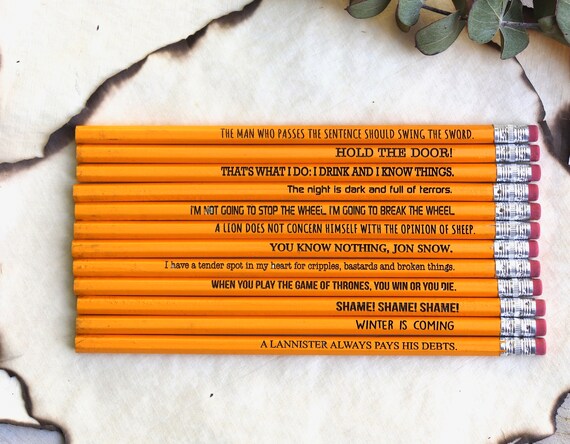 THE MAN WHO PASSES THE SENTENCE SHOULD SWING THE SWORD.
HOLD THE DOOR!
THAT'S WHAT I DO: I DRINK AND I KNOW THINGS.
The night is dark and full of terrors.
I'M NOT GOING TO STOP THE WHEEL. I'M GOING TO BREAK THE WHEEL.
A LION DOES NOT CONCERN HIMSELF WITH THE OPINION OF SHEEP.
YOU KNOW NOTHING, JON SNOW.
I have a tender spot in my heart for cripples, bastards and broken things.
WHEN YOU PLAY THE GAME OF THRONES, YOU WIN OR YOU DIE.
SHAME! SHAME! SHAME!
WINTER IS COMING
A LANNISTER ALWAYS PAYS HIS DEBTS.